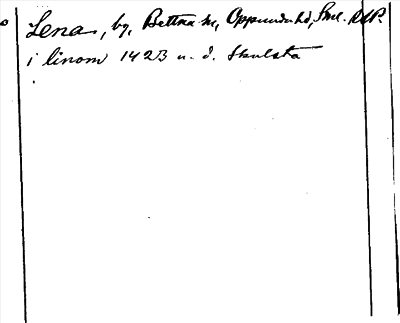 Lena, by, Bettna sn, Oppunda hd, Sml. RAP.
i linom 1423 u. d. Skulsta